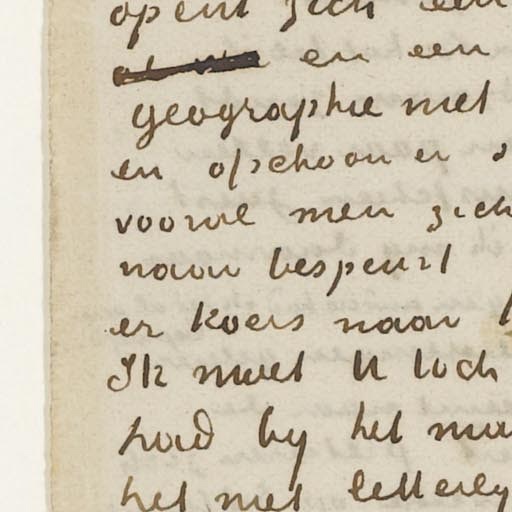 opent zich een
en een
geographie met
en ofschoon er
vooral men zich
naar bespeurt
er koers naar
Ik moet U toch
had by het ma
het met letterly